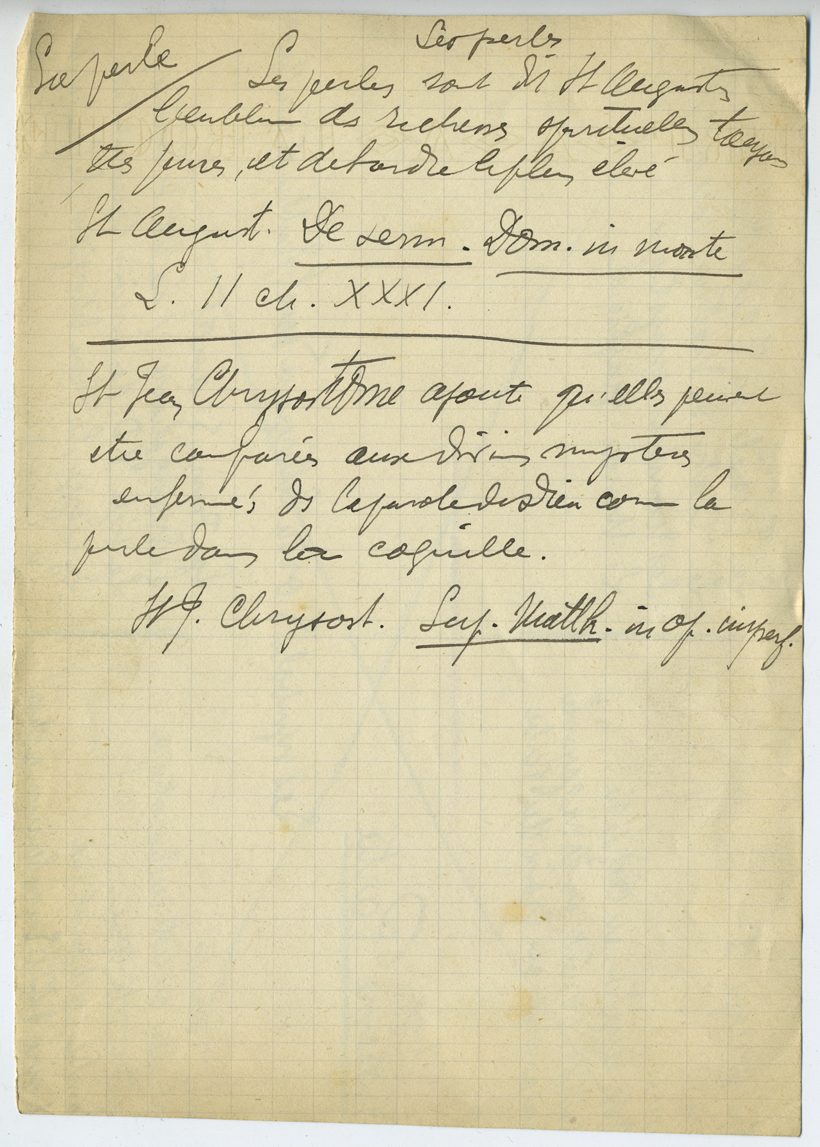 Les perles
La perle
Les perles sont dit St Augustin
l'emblème ds richesses spirituelles toujours
très pures, et de l'ordre le plus élevé
St August. De serm. Dom. in monte
L. II ch. XXXI.
St Jean Chrysostôme ajoute qu'elles peuvent
etre comparées aux divins mystères
enfermés ds la parole de Dieu com la
perle dans la coquille.
St J. Chrysost. Sup. Matth. in op. imperf.